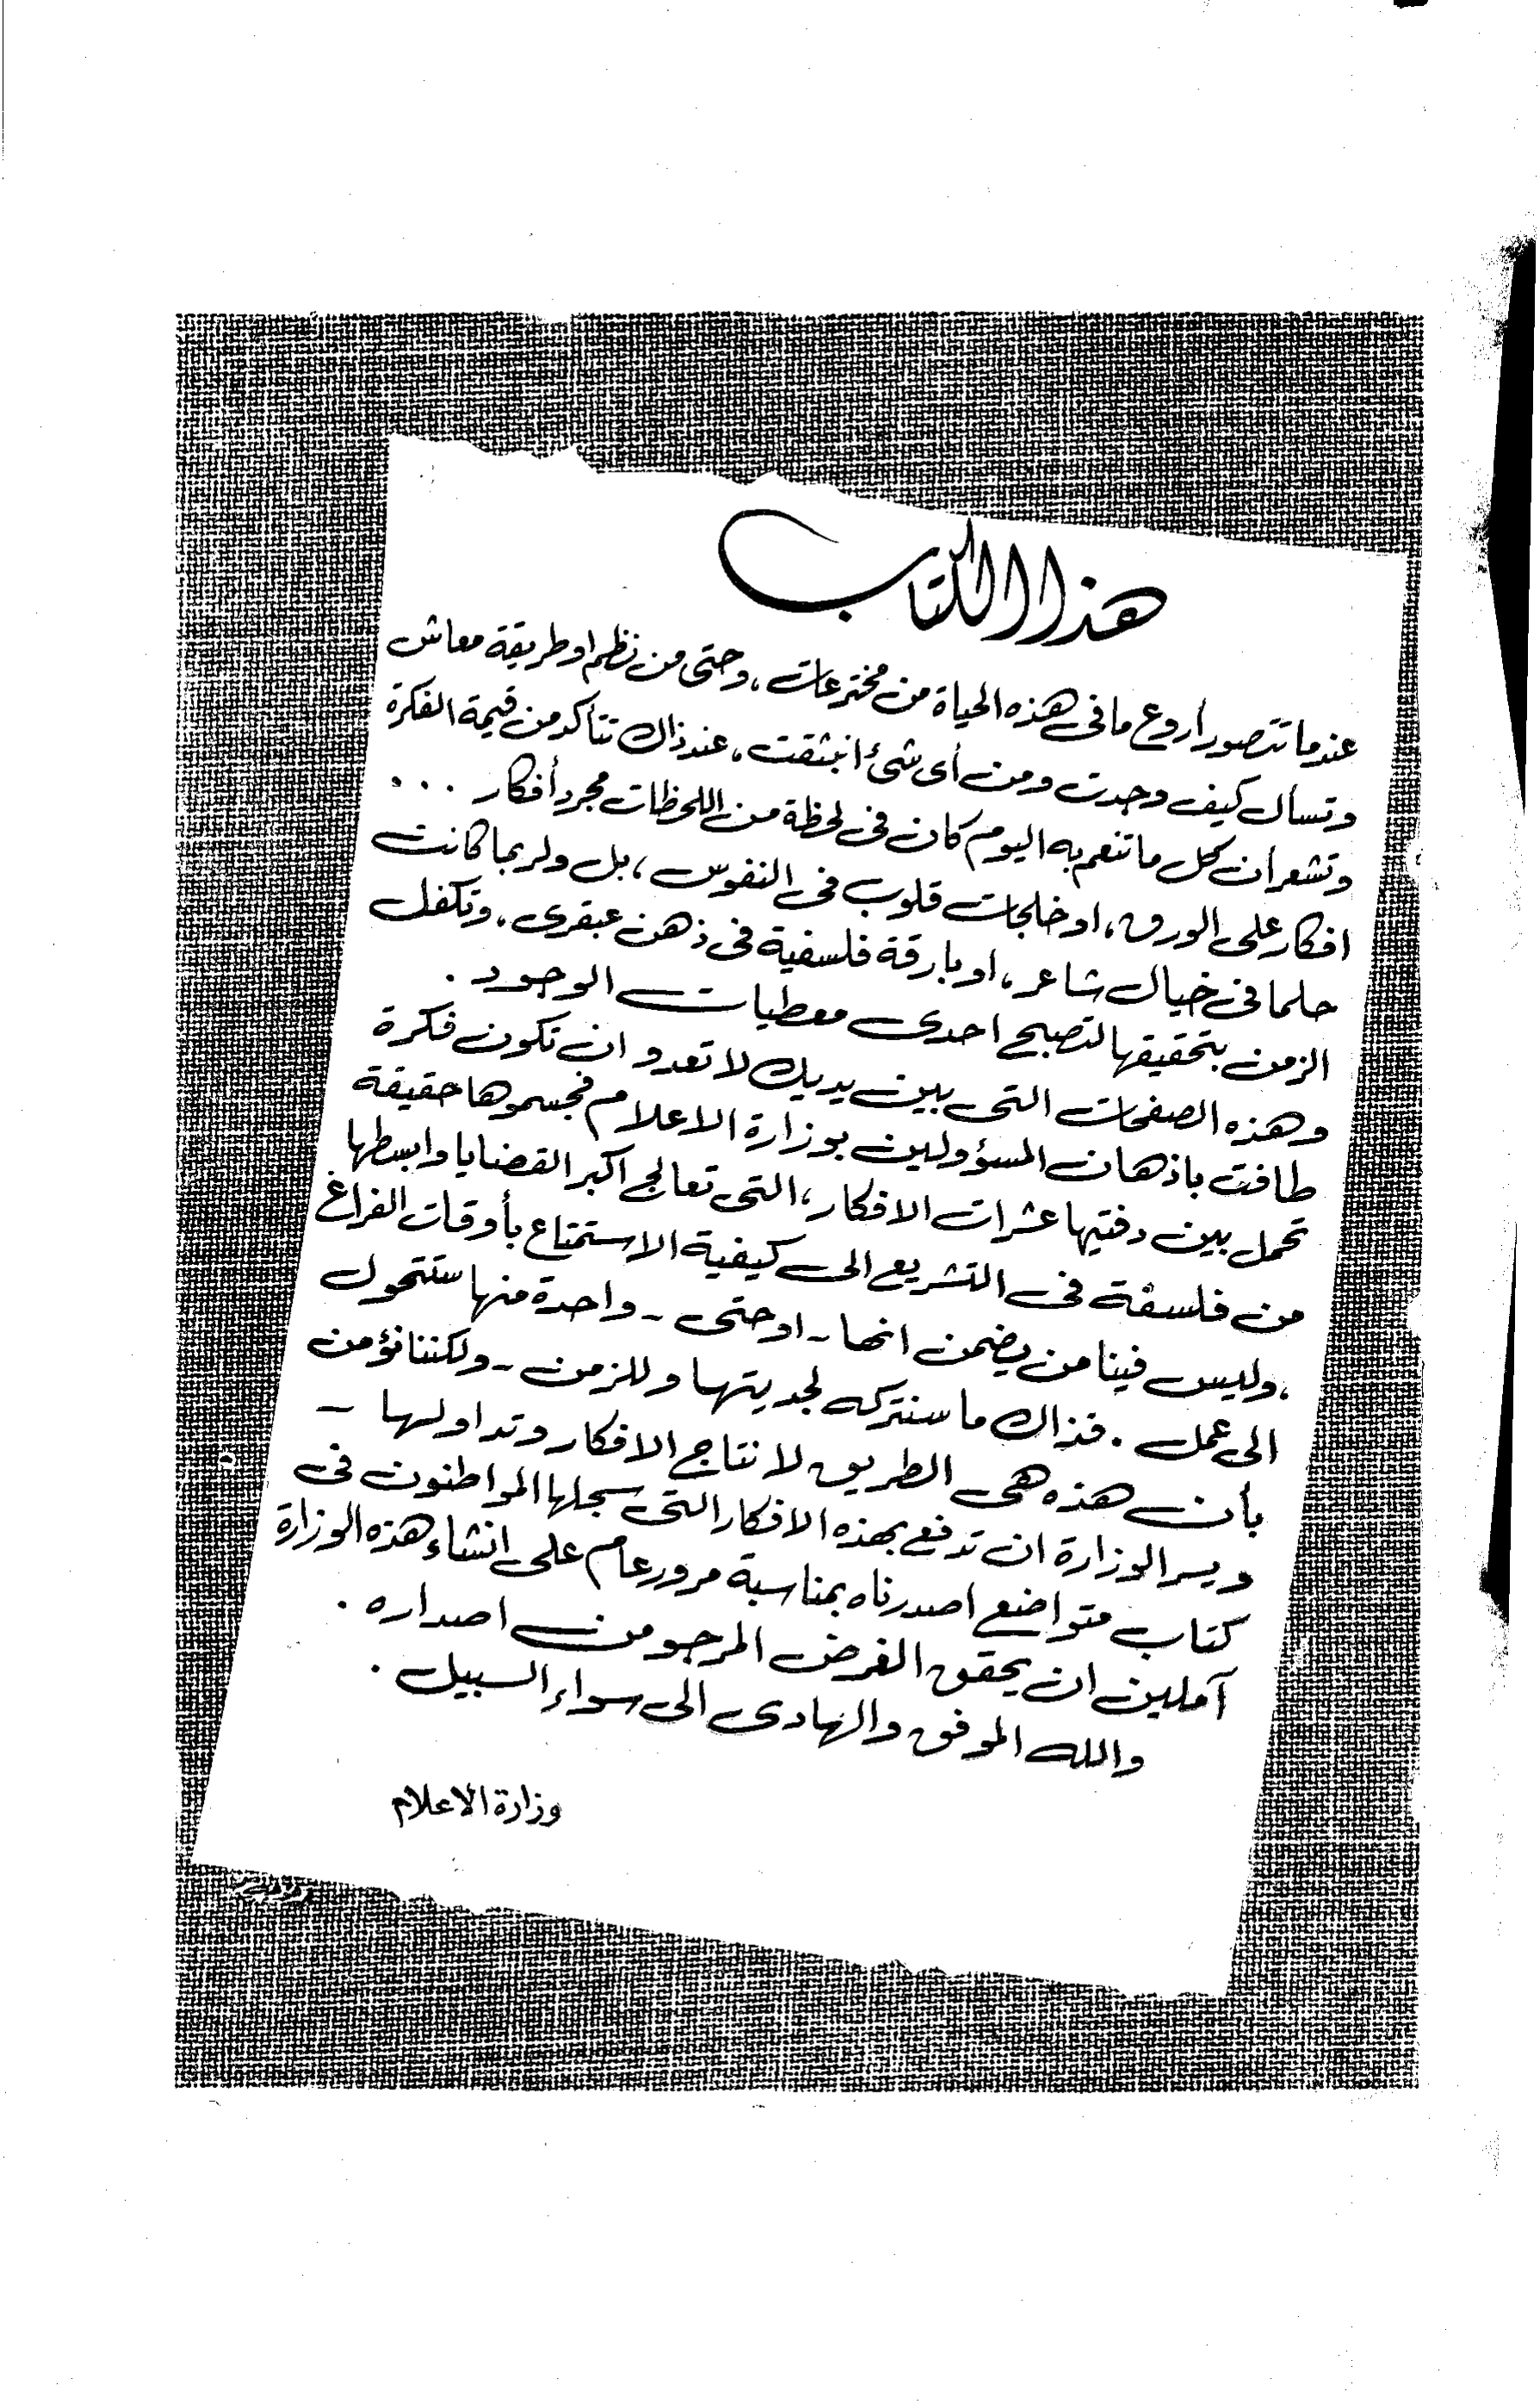 هذا الكتاب
عندما تتصور أروع ما فى هذه الحياة من مخترعات، وحتى من نظم او طريقة معاش
وتسأل كيف وجدت ومن أى شئ انبثقت، عند ذاك تتأكد من قيمة الفكرة
وتشعر أن كل ما تنعم به اليوم كان فى لحظة من اللحظات مجرد أفكار ...
افكار على الورق، او خلجات قلوب فى النفوس، بل ولربما كانت
حلما فى خيال شاعر، او بارقة فلسفية فى ذهن عبقرى، وتكفل
الزمن بتحقيقها لتصبح احدى معطيات الوجود.
وهذه الصفحات التى بين يديك لا تعدو ان تكون فكرة
طافت باذهان المسؤولين بوزارة الاعلام فجسموها حقيقة
تحمل بين دفتيها عشرات الافكار، التى تعالج اكبر القضايا وابسطها
من فلسفة فى التشريع الى كيفية الاستمتاع بأوقات الفراغ
، وليس فينا من يضمن انها - او حتى - واحدة منها ستتحول
الى عمل . فذاك ما سنتركه لجديتها وللزمن - ولكننا نؤمن
بأن هذه هى الطريق لانتاج الافكار وتداولها -
ويسر الوزارة ان تدفع بهذه الافكار التى سجلها المواطنون فى
كتاب متواضع اصدرناه بمناسبة مرور عام على انشاء هذه الوزارة
آملين ان يحقق الغرض المرجو من اصداره .
والله الموفق والهادى الى سواء السبيل .
وزارة الاعلام